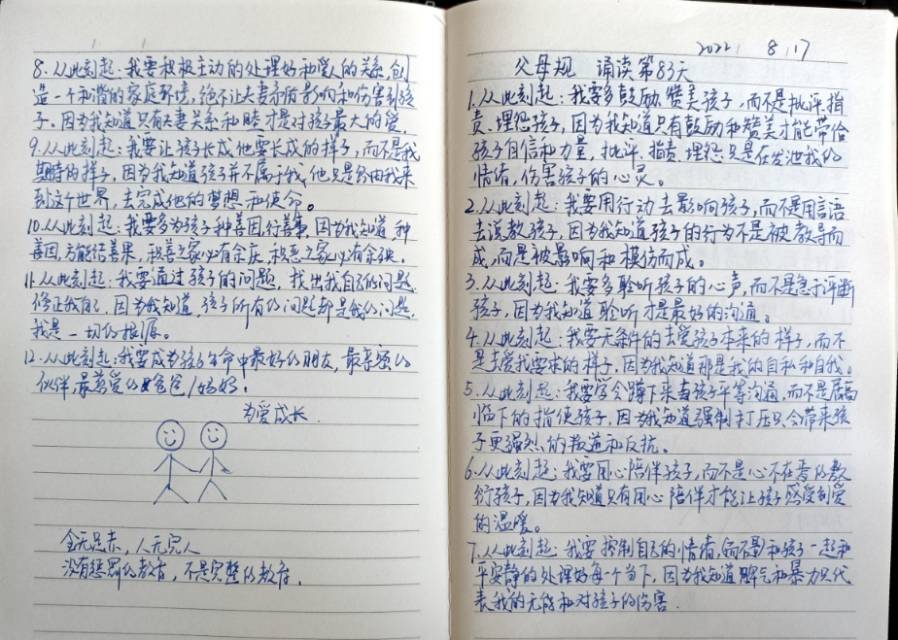 2022 8.17
父母规 诵读第83天
1.从此刻起：我要多鼓励,赞美孩子，而不是批评,指
责、埋怨孩子，因为我知道只有鼓励和赞美才能带给
孩子自信和力量，批评,指责,埋怨只是在发泄我的
情绪，伤害孩子的心灵。
2.从此刻起：我要用行动去影响孩子，而不是用言语
去说教孩子，因为我知道孩子的行为不是被教导而
成,而是被影响和模仿而成。
3.从此刻起：我要多聆听孩子的心声，而不是急于评断
孩子，因为我知道聆听才是最好的沟通。
4.从此刻起：我要无条件的去爱孩子本来的样子，而不
是去爱我要求的样子，因为我知道那是我的自私和自我。
5.从此刻起：我要学会蹲下来与孩子平等沟通，而不是居高
临下的指使孩子，因为我知道强制打压只会带来孩
子更强烈的叛逆和反抗。
6.从此刻起：我要用心陪伴孩子，而不是心不在焉的敷
衍孩子，因为我知道只有用心陪伴才能让孩子感受到爱
的温暖。
7.从此刻起：我要控制自己的情绪，和孩子一起和
平安静的处理好每一个当下，因为我知道脾气和暴力只代
表我的无能和对孩子的伤害.
8.从此刻起：我要积极主动的处理好和爱人的关系,创
造一个和谐的家庭环境，绝不让夫妻矛盾影响和伤害到孩
子。因为我知道只有夫妻关系和睦才是对孩子最大的爱.
9.从此刻起：我要让孩子长成他要长成的样子，而不是我
期待的样子，因为我知道孩子并不属于我,他只是经由我来
到这个世界，去完成他的梦想和使命。
10.从此刻起：我要多为孩子种善因,行善事,因为我知道种
善因,方能结善果，积善之家必有余庆,积恶之家必有余殃.
11.从此刻起：我要通过孩子的问题,找出我自己的问题,
修正我自己,因为我知道,孩子所有的问题都是我的问题,
我是一切的根源。
12.从此刻起：我要成为孩子生命中最好的朋友，最亲密的
伙伴最喜爱的爸爸/妈妈.
为爱成长.
金无足赤，人无完人
没有惩罚的教育，不是完整的教育.